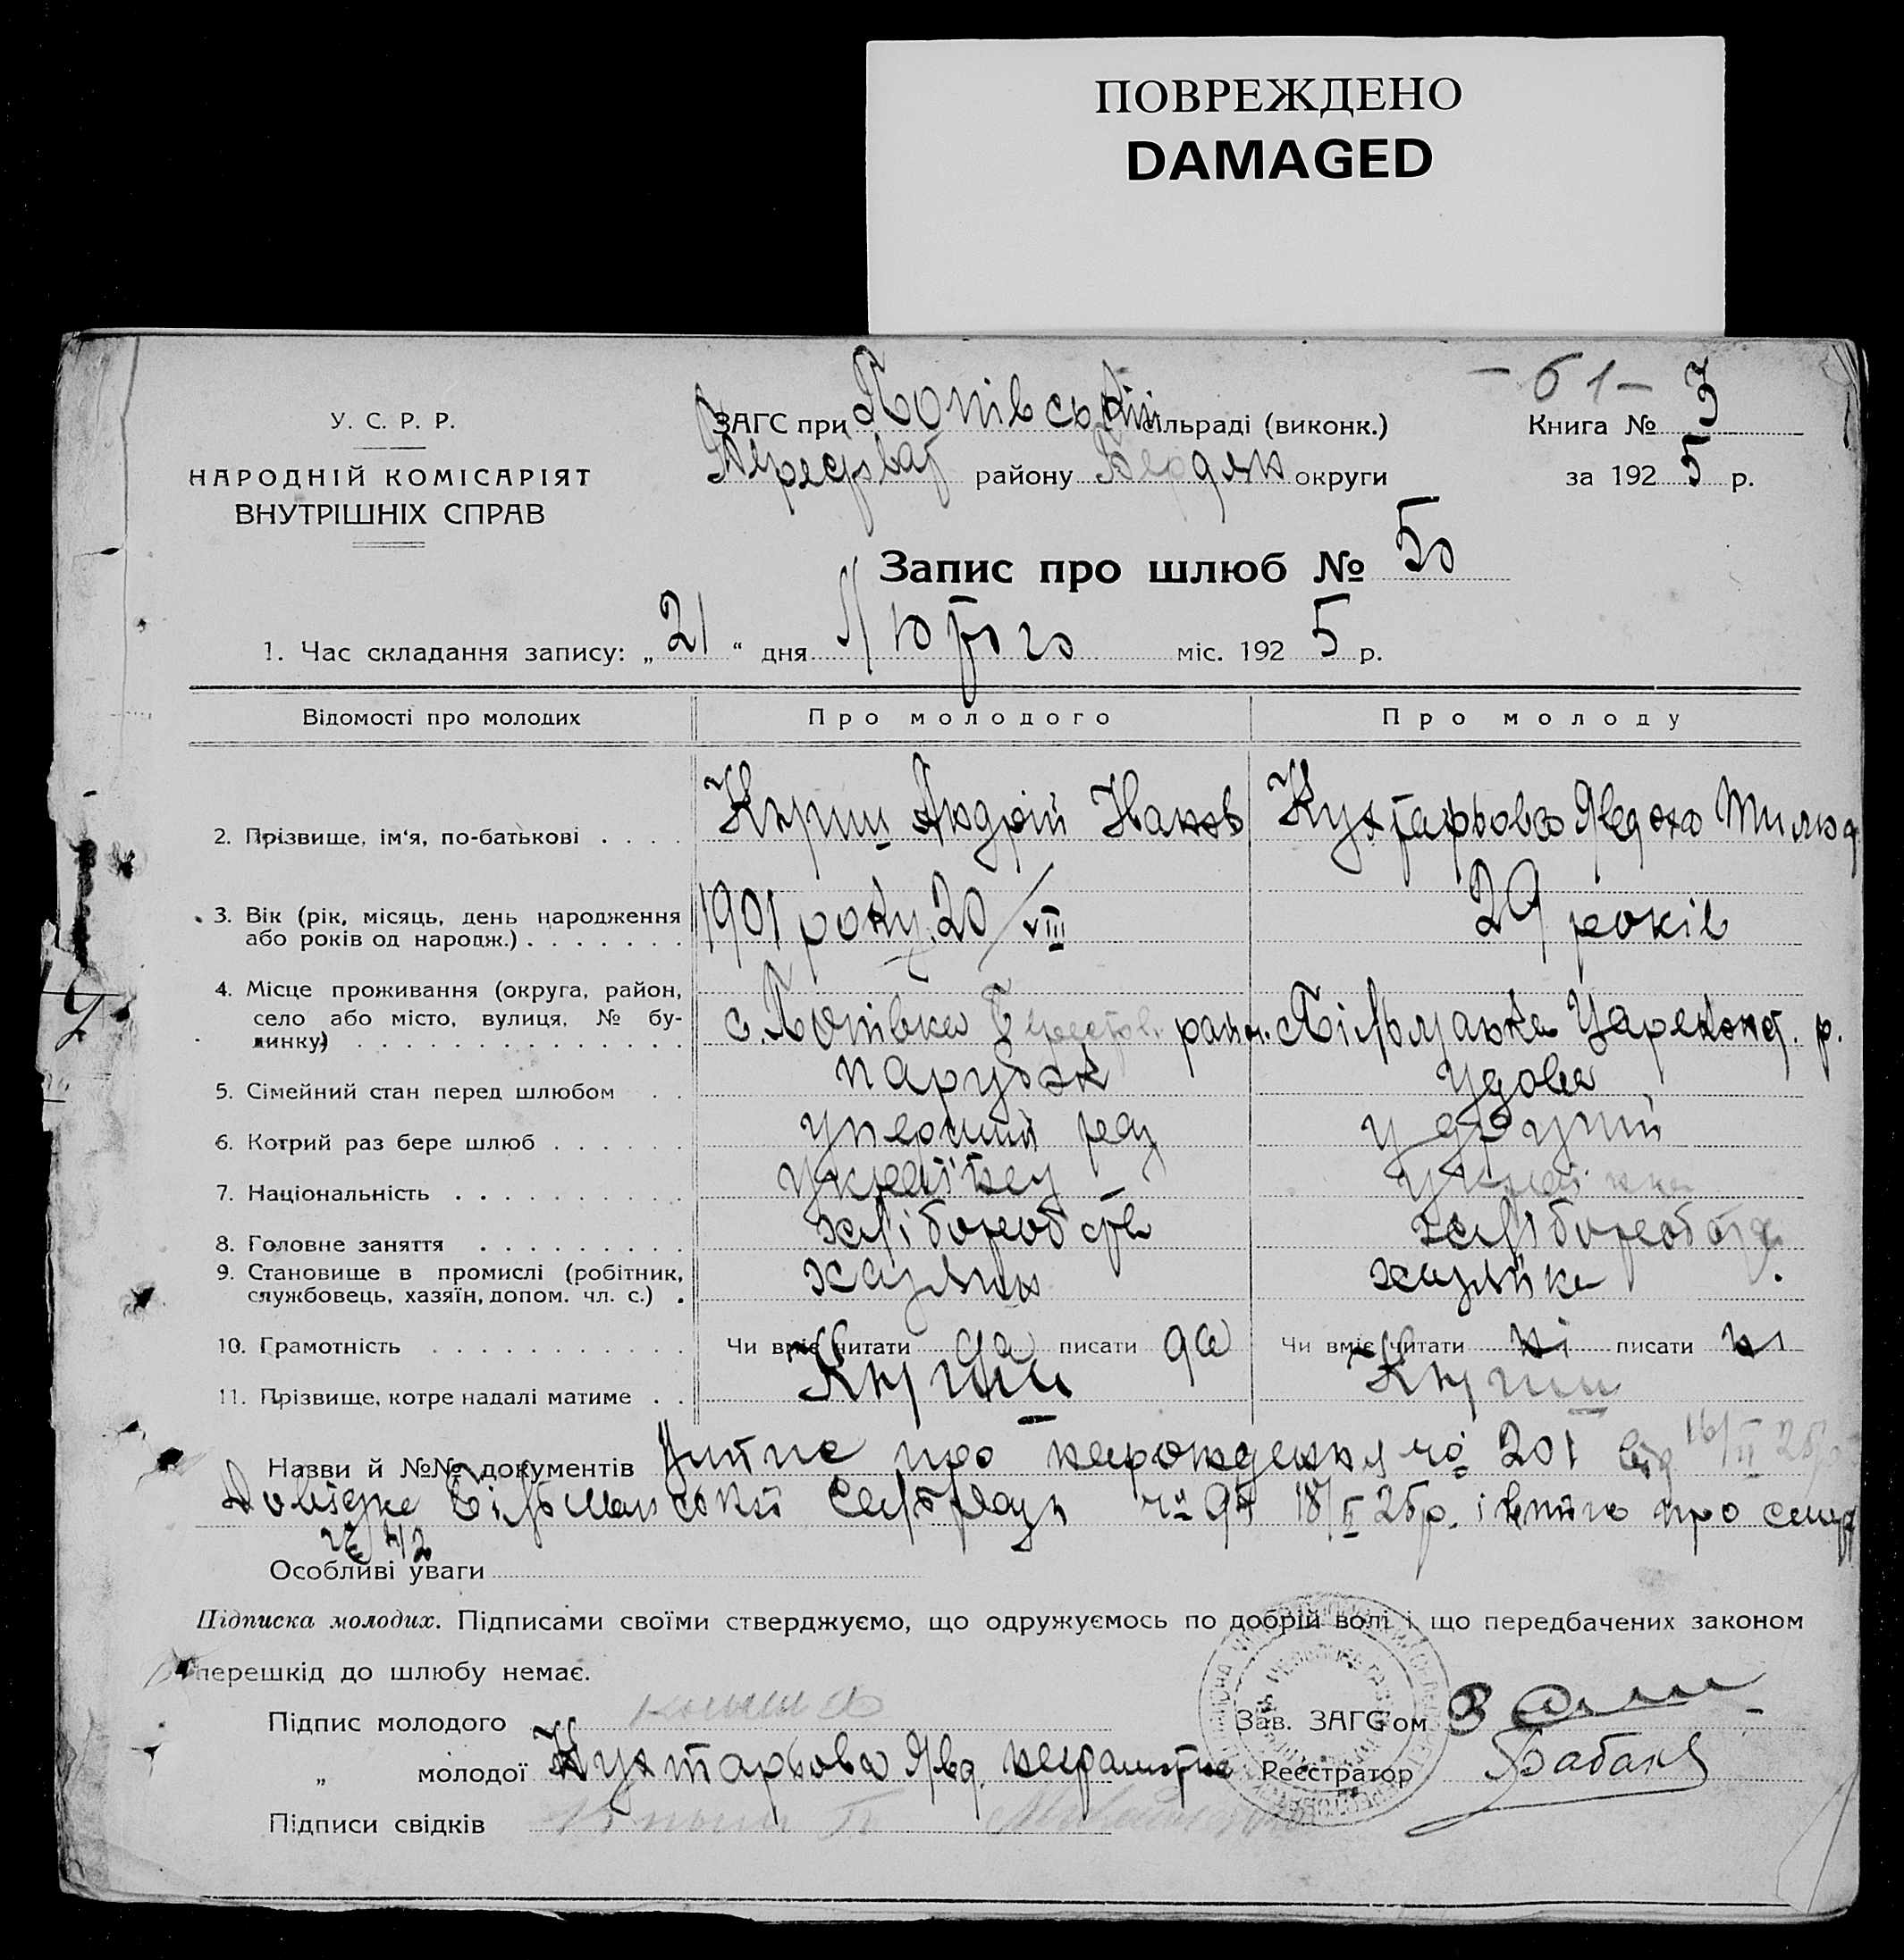 ПОВРЕЖДЕНО
DAMAGED
- 61 -
У. С. Р. Р.
НАРОДНІЙ КОМІСАРІЯТ
ВНУТРІШНІХ СПРАВ
ЗАГС при Попівській сільраді (виконк.)
району Бердян округи
Книга № 3
за 192 5 р.
Запис про шлюб № 50
1. Час складання запису: „ 21 “ дня Лютого міс. 192 5 р.
Відомості про молодих Про молодого Про молоду
2. Прізвище, ім‘я, по-батькові Андрій Кухтарьова Явдоха
3. Вік (рік, місяць, день народження
або років од народж.) 1901 року 20/VIII 29 років
4. Місце проживання (округа, район,
село або місто, вулиця, № бу-
динку) с. Попівка Берестов. район. Більманка Цареконст. р.
5. Сімейний стан перед шлюбом парубок удова
6. Котрий раз бере шлюб у перший раз у другий
7. Національність українка
8. Головне заняття хліборобств хліборобств
9. Становище в промислі (робітник,
службовець, хазяїн, допом. чл. с.) хазяїн хазяйка
10. Грамотність Чи вміє читати да писати да Чи вміє читати ні писати ні
11. Прізвище, котре надалі матиме
Назви й №№ документів про народження № 201 від 16/II 25р
Довідка Більманської Сельради № 94 18/II 25р. і про смерт
№ 42
Особливі уваги
Підписка молодих. Підписами своїми стверджуємо, що одружуємось по добрій волі і що передбачених законом
перешкід до шлюбу немає.
Підпис молодого
Зав. ЗАГС'ом
„ молодої Кухтарьова Явд. неграмотна
Реєстратор
Підписи свідків